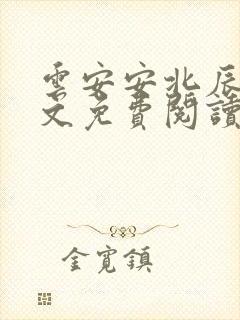 雲安安北辰
文免費閱讀
金寬鎮